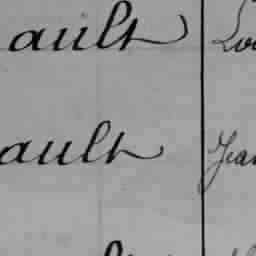 ault Lou
ault Jean